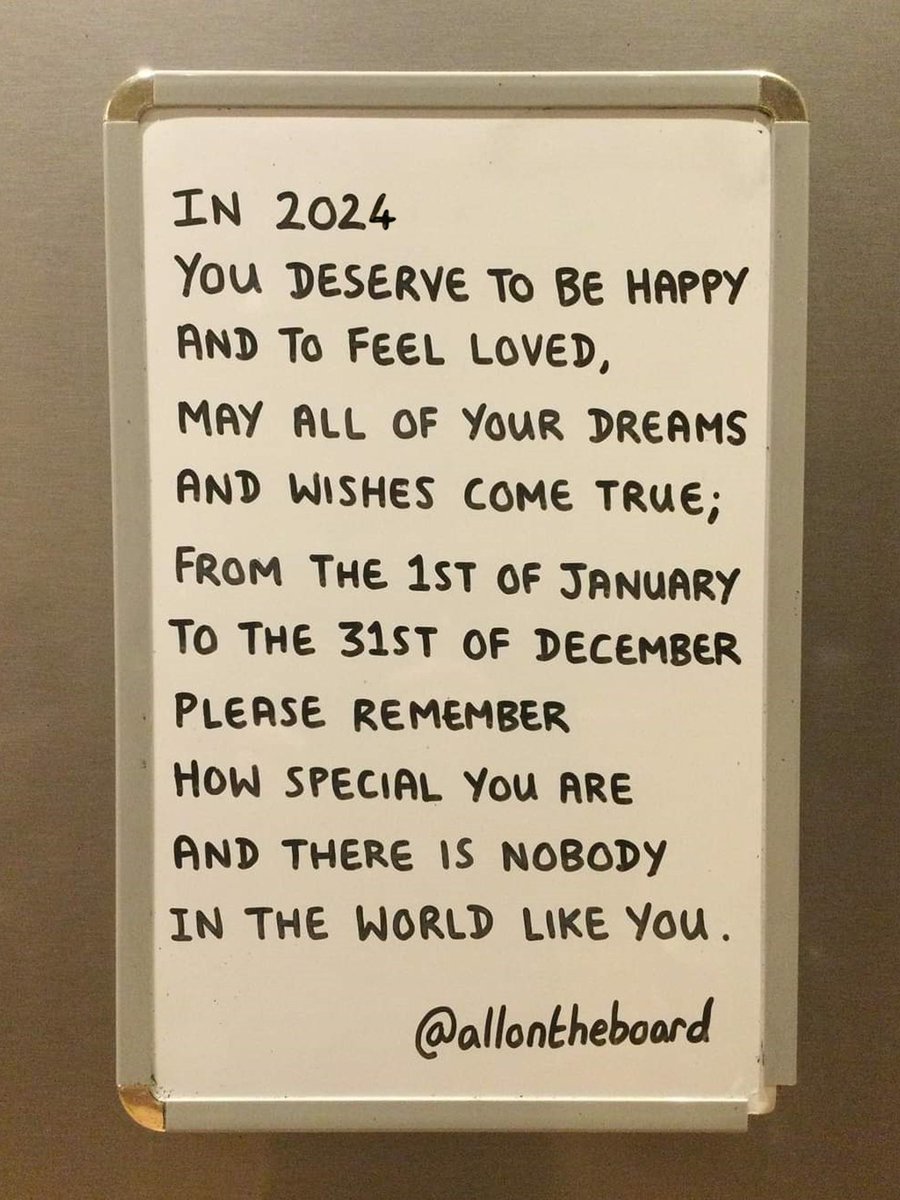 IN 2024
YOU DESERVE TO BE HAPPY
AND TO FEEL LOVED,
MAY ALL OF YOUR DREAMS
AND WISHES COME TRUE;
FROM THE 1ST OF JANUARY
TO THE 31ST OF DECEMBER
PLEASE REMEMBER
HOW SPECIAL YOU ARE
AND THERE IS NOBODY
IN THE WORLD LIKE YOU.
@allontheboard